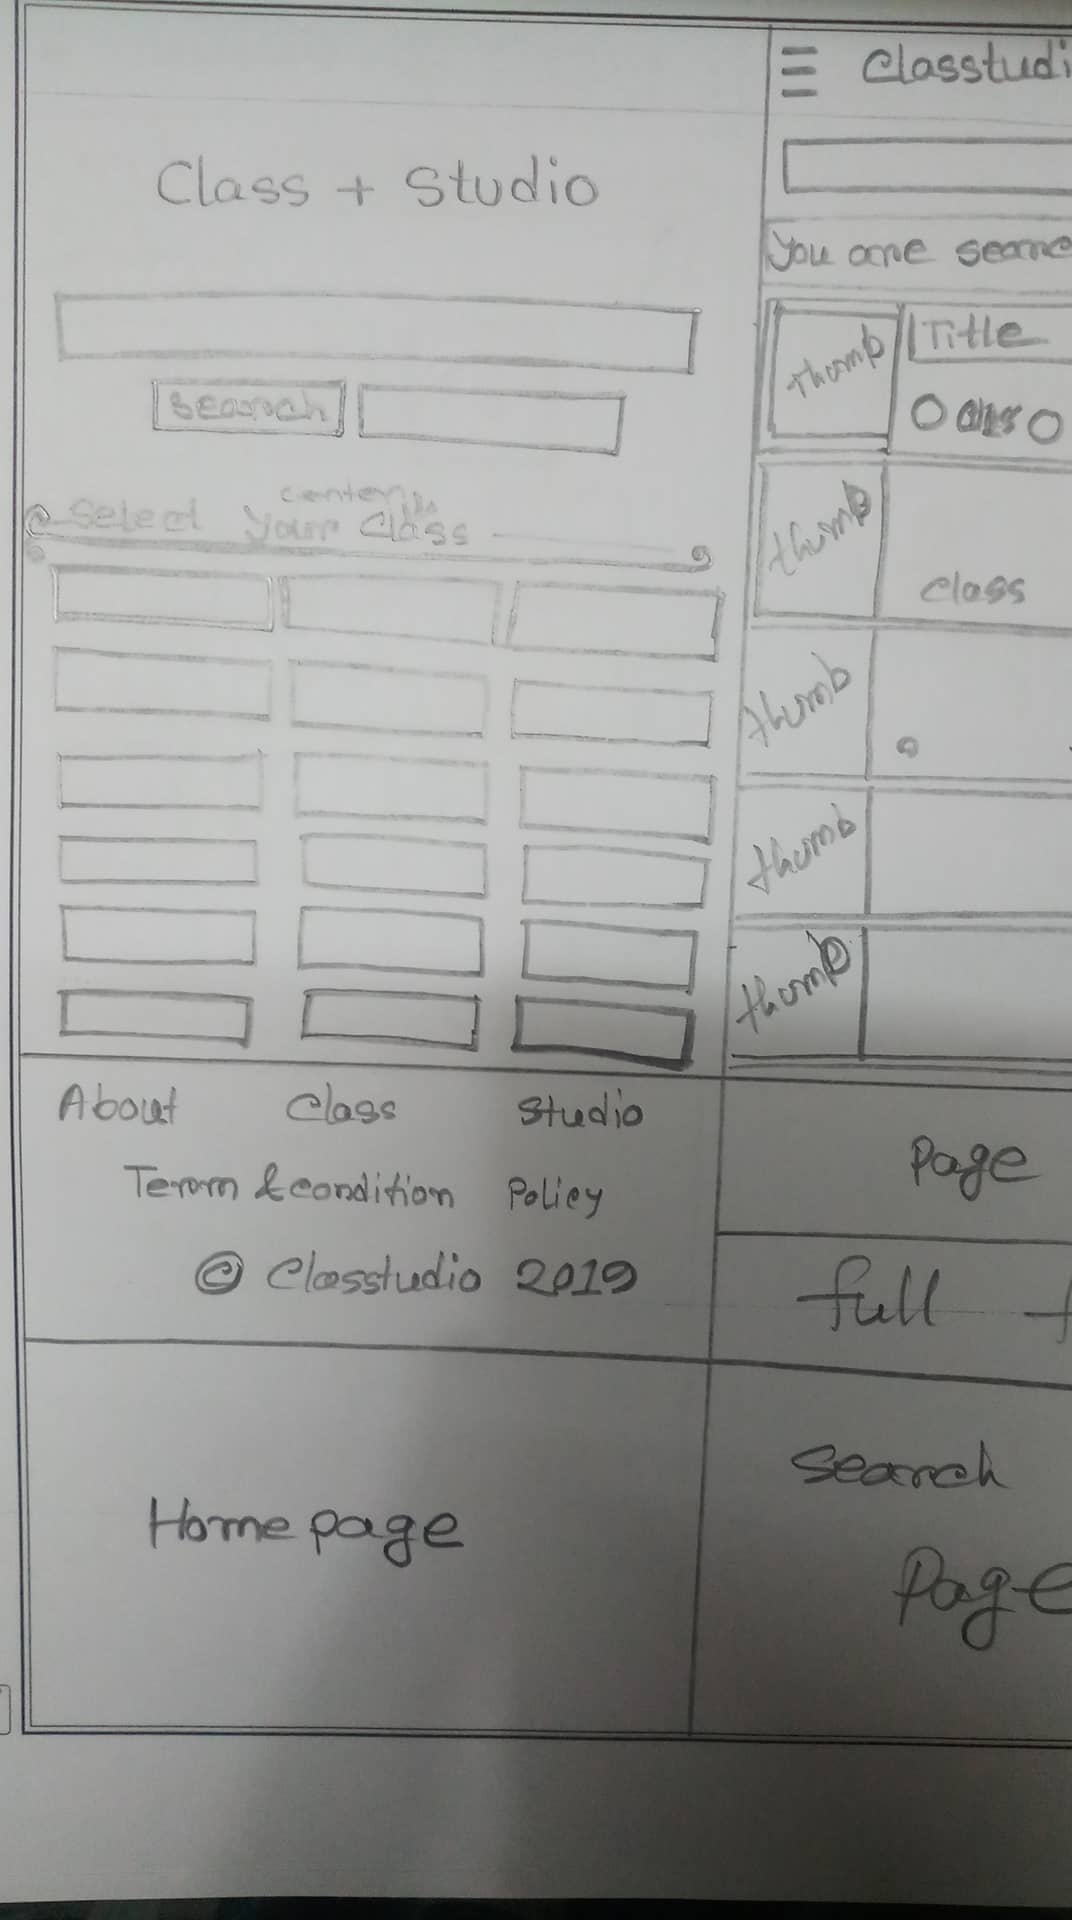 Class + Studio
Search
Select your Class
center
About Class Studio
Term & condition Policy
© Classtudio 2019
Home page
Classtudi
You are searc
Thumb Title
class
thumb
class
thumb
thumb
thumb
Page
full
Search
Page